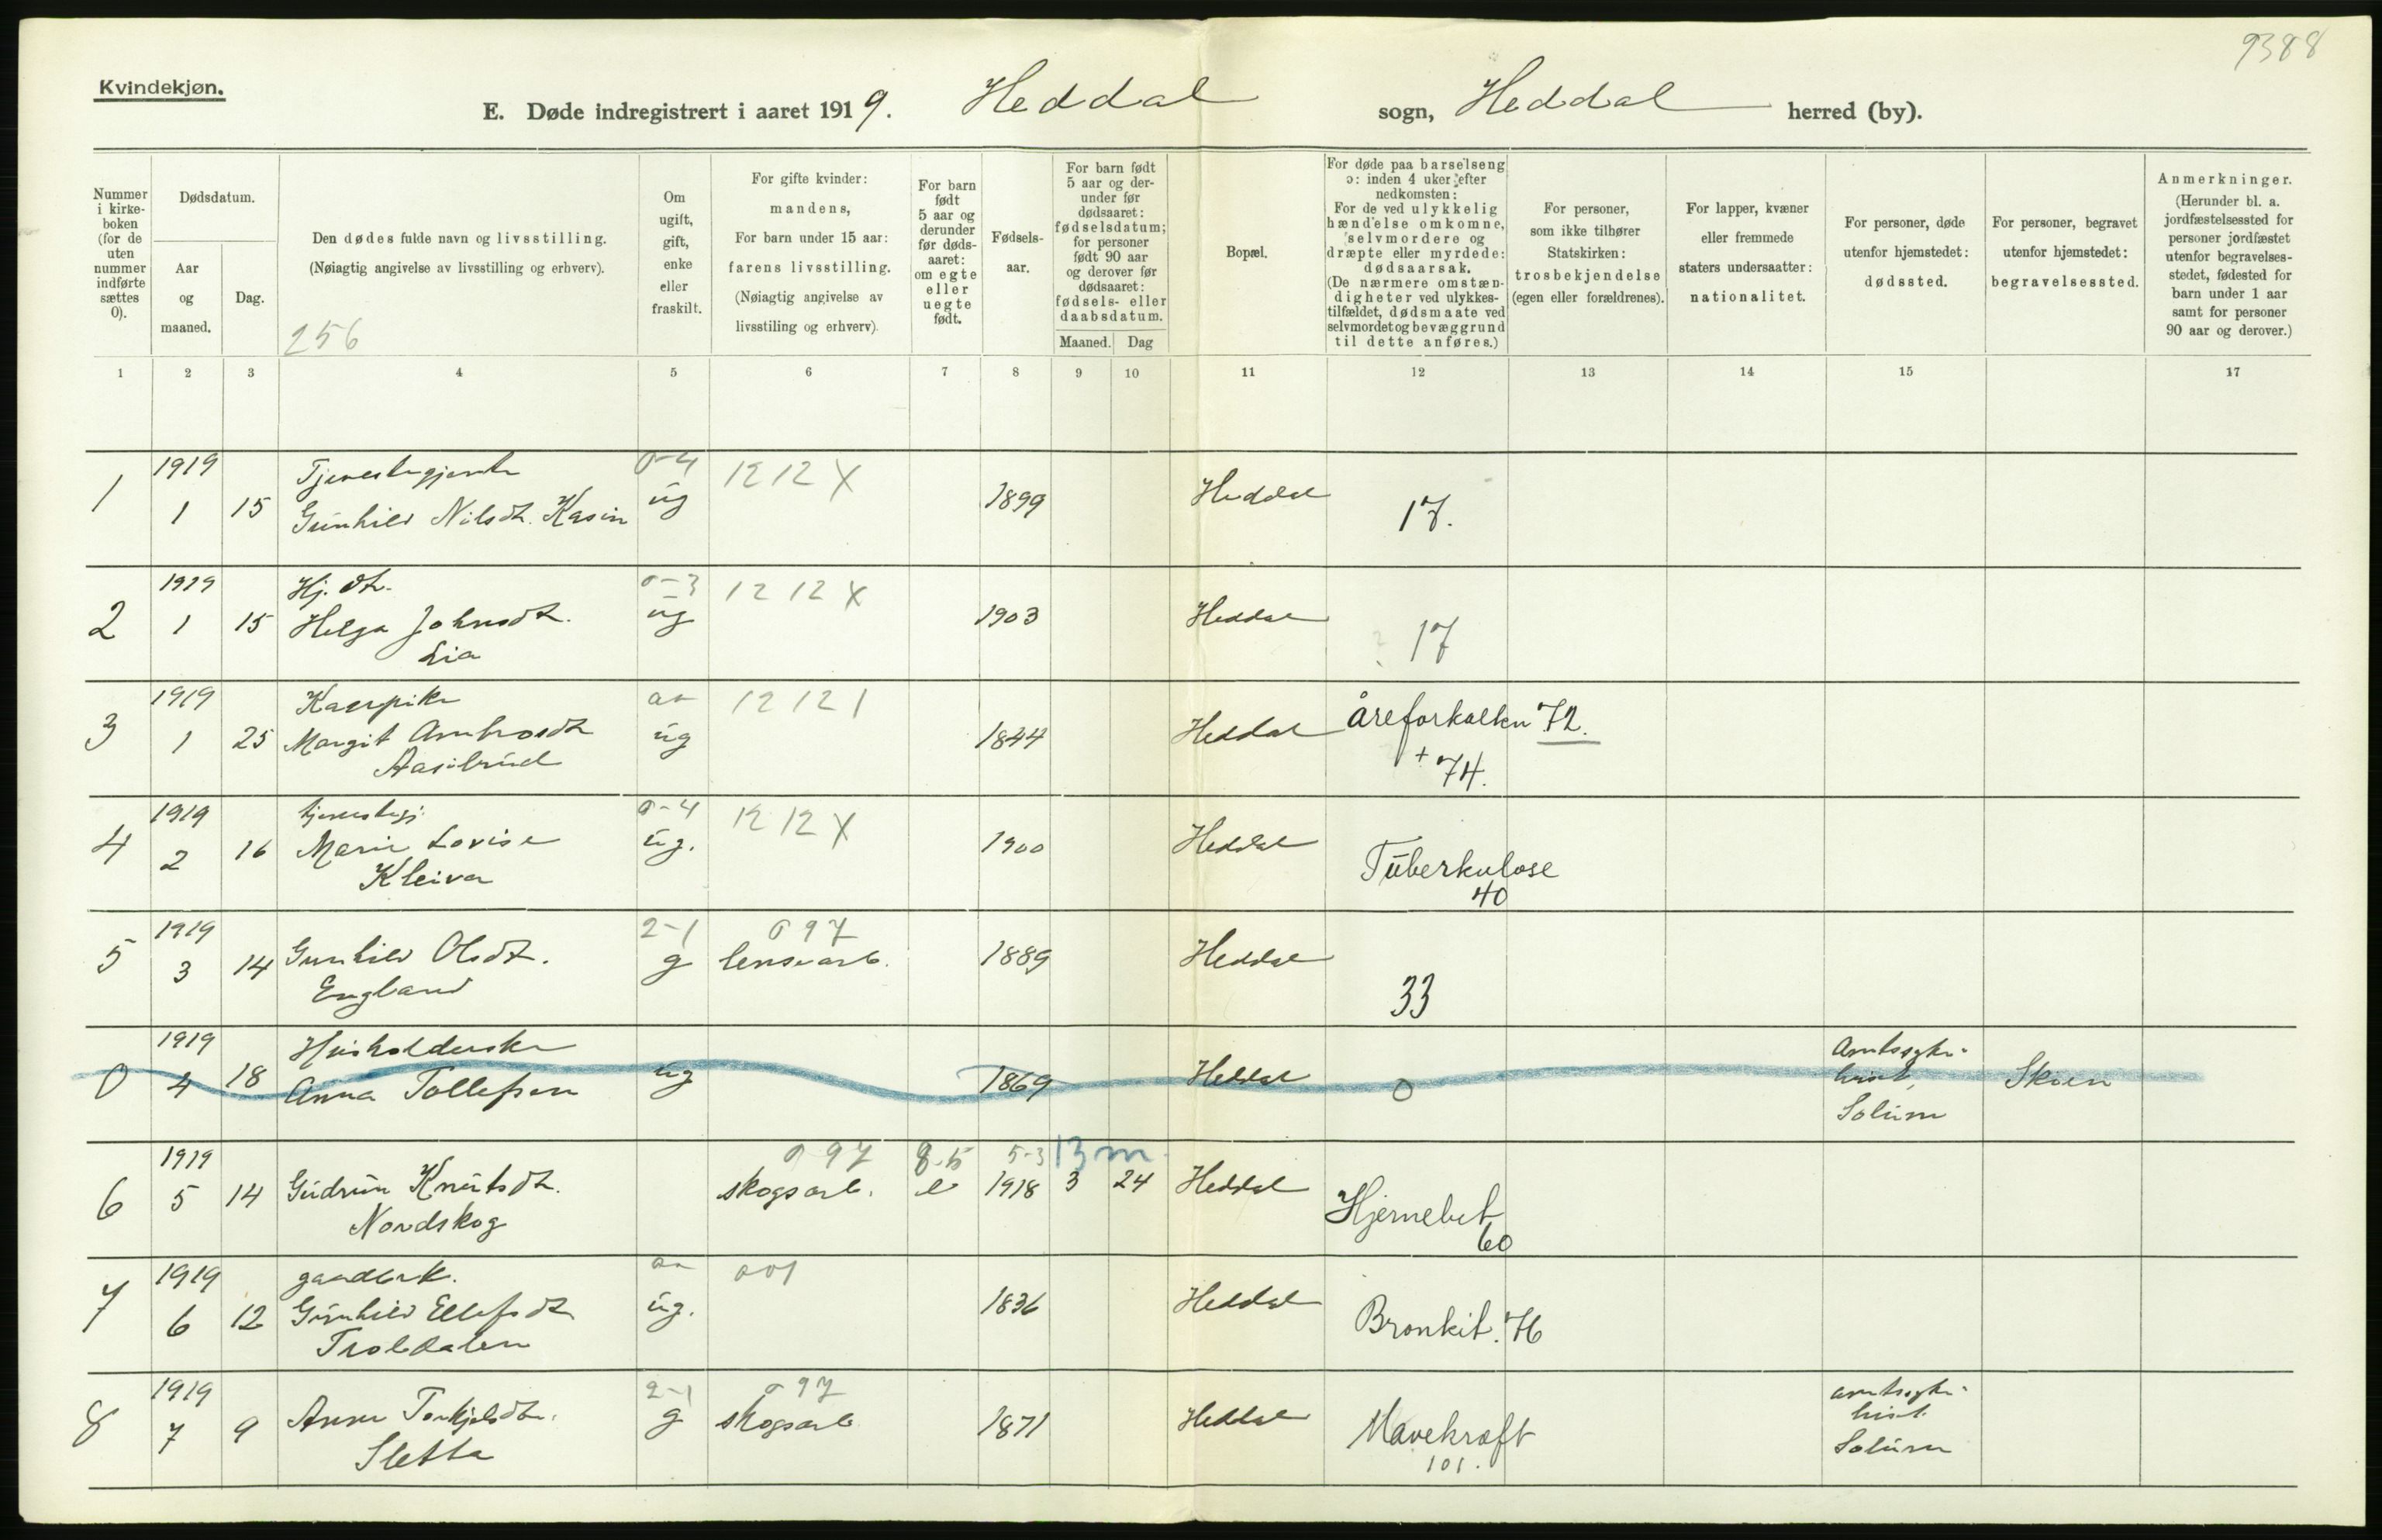 9388
Kvindekjøn.
E. Døde indregistrert i aaret 1919. Heddal sogn, Heddal herred (by).
Nummer i kirke-boken (for de uten nummer indførte sættes 0).
Dødsdatum.
Aar og maaned.
Dag.
Den dødes fulde navn og livsstilling.
(Nøiagtig angivelse av livsstilling og erhverv).
256
Om ugift, gift, enke eller fraskilt.
For gifte kvinder:
mandens,
For barn under 15 aar:
farens livsstilling.
(Nøiagtig angivelse av
livsstiling og erhverv).
For barn født 5 aar og derunder før døds-aaret: om egte eller uegte født.
Fødsels-aar.
For barn født 5 aar og der-under før dødsaaret: fødselsdatum; for personer født 90 aar og derover før dødsaaret: fødsels- eller daabsdatum.
Maaned. Dag
Bopæl.
For døde paa barselseng
ɔ: inden 4 uker efter
nedkomsten:
For de ved ulykkelig
hændelse omkomne,
selvmordere og
dræpte eller myrdede:
dødsaarsak.
(De nærmere omstæn-
digheter ved ulykkes-
tilfældet, dødsmaate ved
selvmordet og bevæggrund
til dette anføres.)
For personer,
som ikke tilhører
Statskirken:
trosbekjendelse
(egen eller forældrenes).
For lapper, kvæner
eller fremmede
staters undersaatter:
nationalitet.
For personer, døde
utenfor hjemstedet:
dødssted.
For personer, begravet
utenfor hjemstedet:
begravelsessted.
Anmerkninger.
(Herunder bl. a.
jordfæstelsessted for
personer jordfæstet
utenfor begravelses-
stedet, fødested for
barn under 1 aar
samt for personer
90 aar og derover.)
1 2 3 4 5 6 7 8 9 10 11 12 13 14 15 17
1919 Tjenestegjente 0-4 12 12 X
1 1 15 Gunhild Nilsdt. Kasin ug 1899 Heddal 17.
1919 Hj. dt. 0-3 12 12 X
2 1 15 Helga Johnsdt. ug 1903 Heddal 17
Lia
1919 12 12 1
3 1 25 Margit Ambrosdt ug 1844 Heddal åreforkalkn 72.
Aasebrud + 74.
1919 tjenestegj. 0-4 12 12 X
4 2 16 Marie Lovise ug. 1900 Heddal Tuberkulose
Kleiva 40
1919 2-1 097
5 3 14 Gunhild Olsdt. g lensearb. 1889 Heddal 33
England
1919 Husholderske Amtssyke-
0 4 18 Anna Tollefsen ug 1869 Heddal 0 huset, Skien
Solum
1919 097 8-5 5-3 13 m
6 5 14 Gudrun Knutsdt. skogsarb. e 1918 3 24 Heddal Hjernebet
Nordskog 60
1919 gaardbrk. 001
7 6 12 Gunhild Ellefsdt ug. 1836 Heddal Bronkit. 76
Troldalen
1919 2-1 097 amtssyke-
8 7 9 Anne Torkjelsdtr. g skogsarb 1871 Heddal Mavekræft huset
Sletta 101. Solum